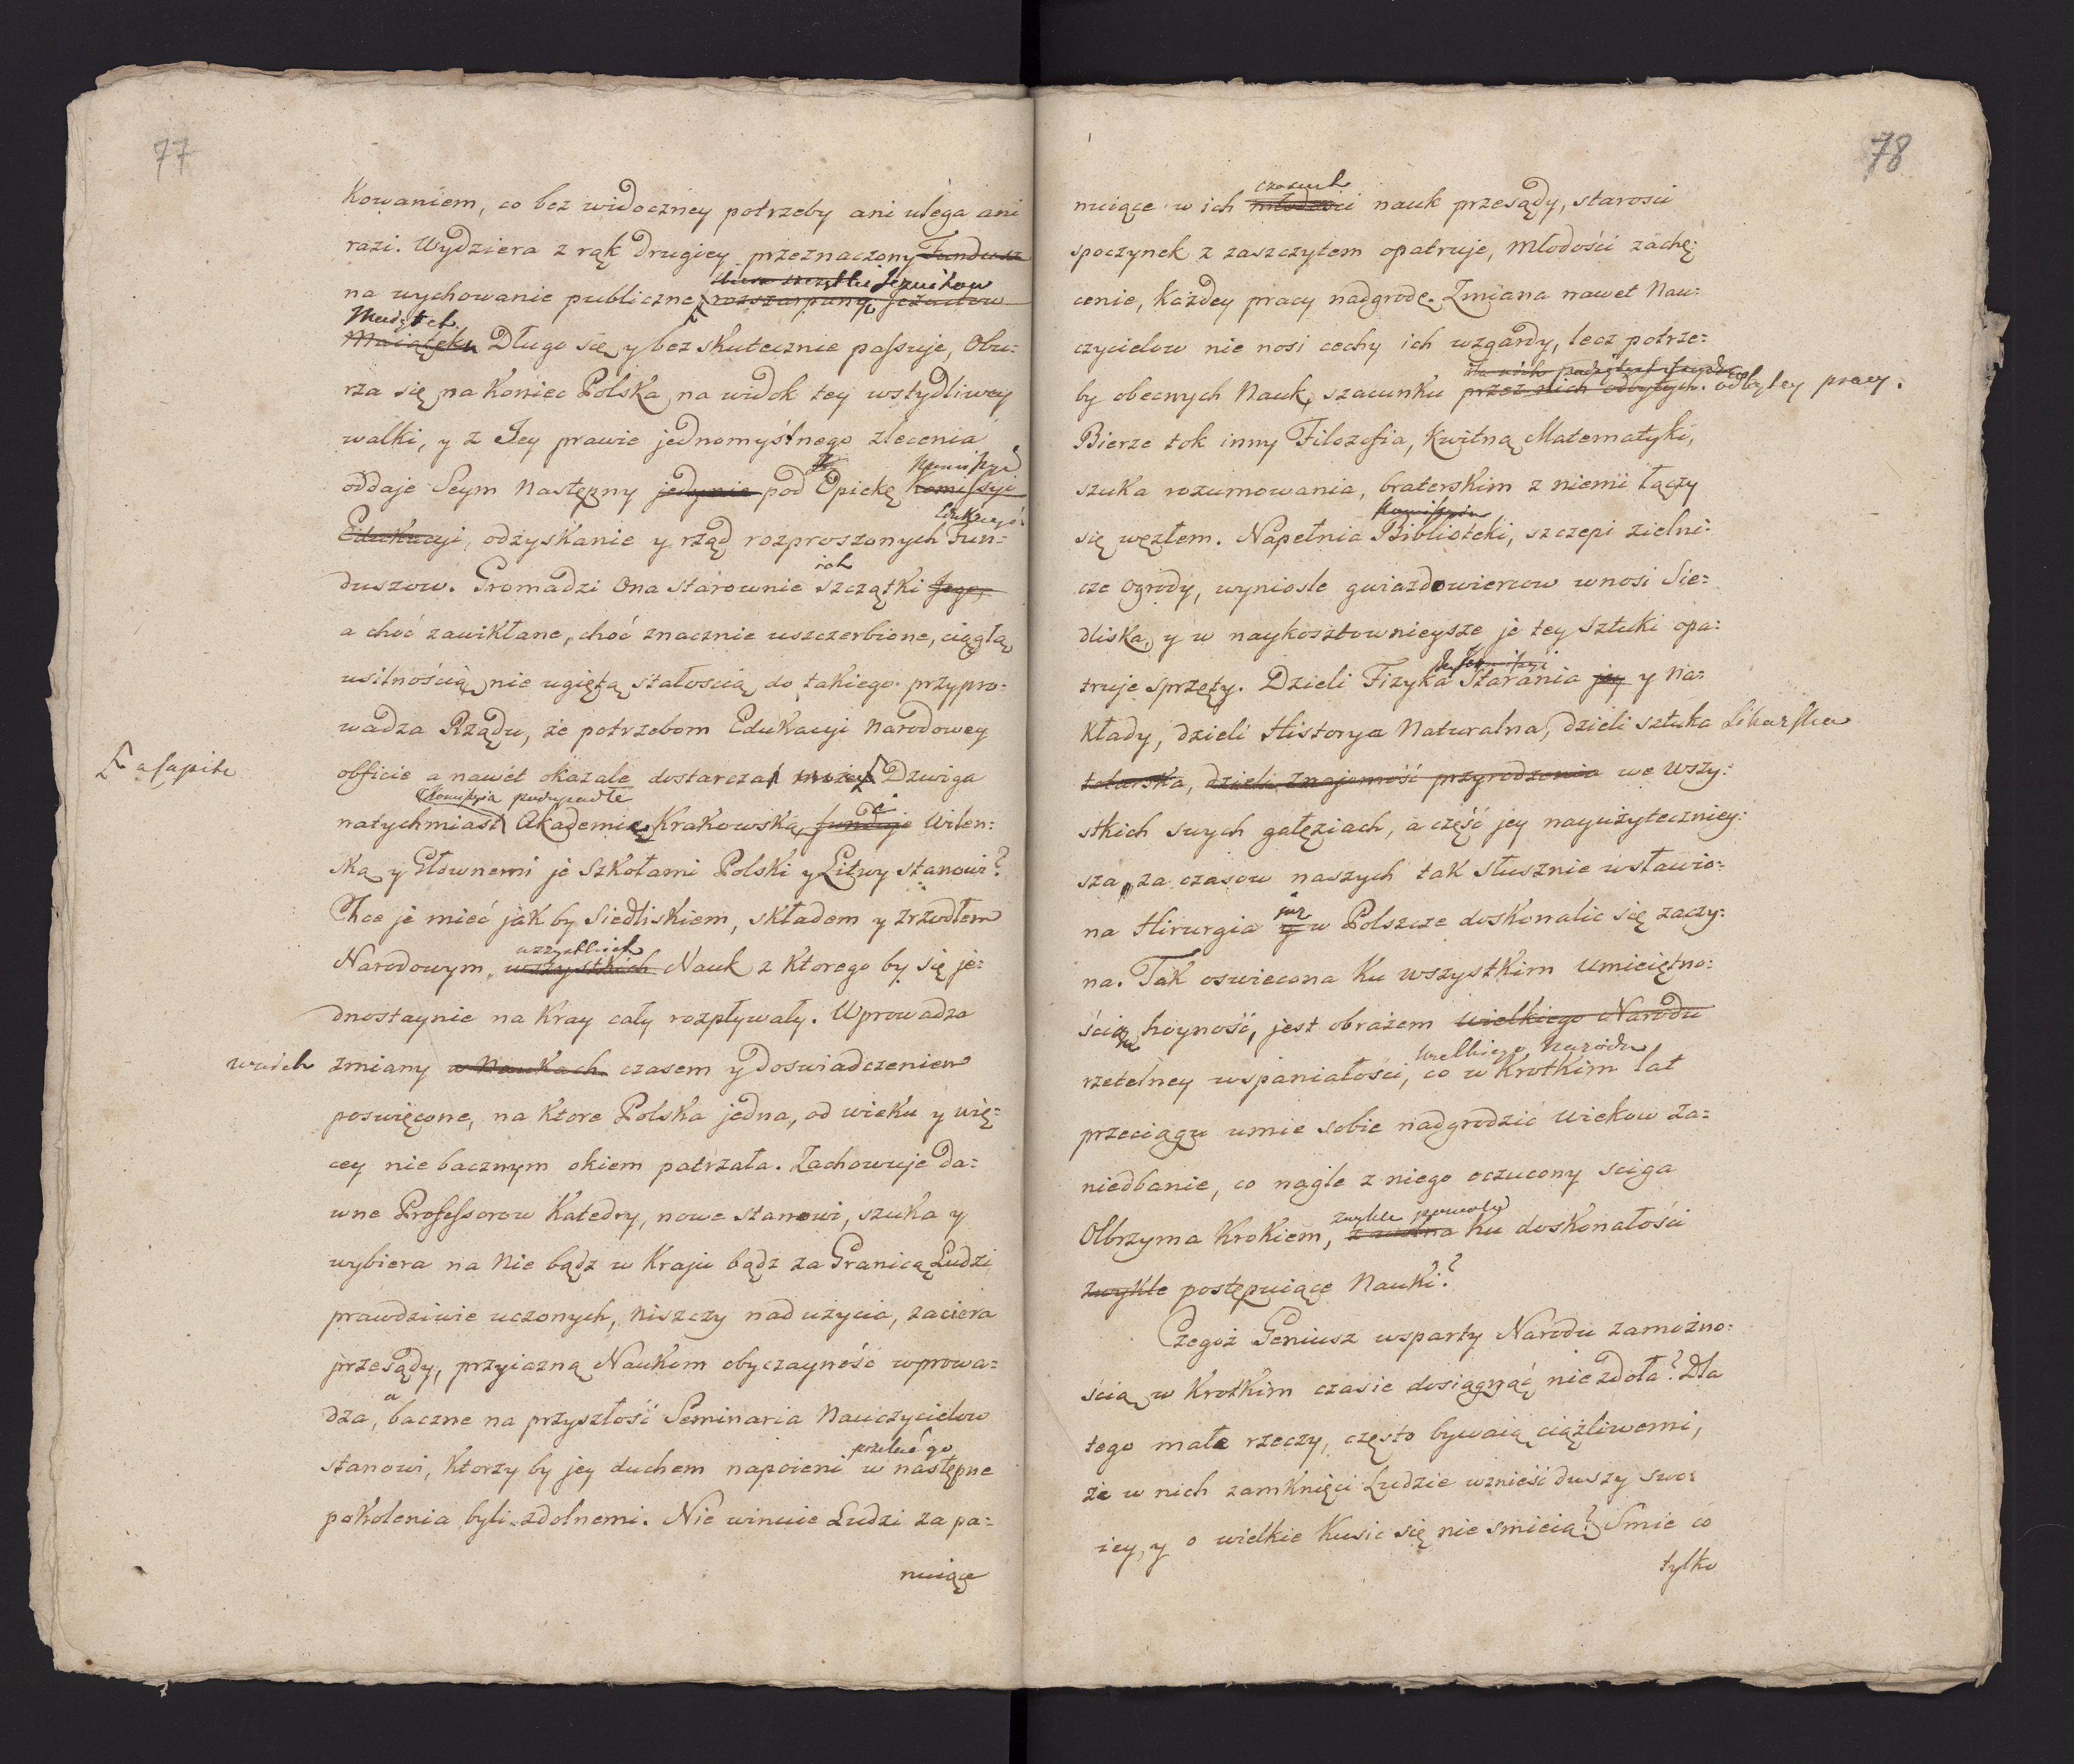 77
Kowaniem, co bez widoczney potrzeby ani ulega ani
razi. Wydziera z rąk drugiey przeznaczony Fundusz
Jezuitow
na wychowanie publiczne rozszarpany Jezuitow
Maiątek
Maiątek Długo się y bez skutecznie paſsuje, Obu:
rza się na koniec Polska na widok tey wstydliwey
walki, y z Jey prawie jednomyślnego zlecenia
Komiſsyi
oddaje Seym Następny jedynie pod Opiekę Komiſsyi
Edukacyi
Edukacyi, odzyskanie y rząd rozproszonych Fun:
ich
duszow. Gromadzi Ona starownie szczątki Jego,
a choć zawikłane, choć znacznie uszczerbione, ciągłą
usilnością nie ugiętą stałoscią do takiego przypro:
wadza Rządu, że potrzebom Edukacyi Narodowey
a capite
obficie a nawet okazale dostarcza Dzwiga
Komiſsyia podupadłe
natychmiast Akademią Krakowską, funduje Wilen:
ską y Głownemi je Szkołami Polski y Litwy stanowi?
Chce je mieć jak by Siedliskiem, składem y zrzodłem
wszystkich
Narodowym, wszystkich Nauk z ktorego by się je:
dnostaynie na Kray cały rozpływały. Wprowadza
w nich zmiany w Naukach czasem y Doswiadczeniem
poswięcone, na ktore Polska jedna, od wieku y wię:
cey nie bacznym okiem patrzała. Zachowuje da:
wne Profeſsorow Katedry, nowe stanowi, szuka y
wybiera na Nie bądz w Kraju bądz za Granicą Ludzi
prawdziwie uczonych, niszczy nad użycia, zaciera
przesądy, przyiazną Naukom obyczayność wprowa:
a
dza, baczne na przyszłość Seminaria Nauczycielow
przelać go
stanowi, Ktorzy by jey duchem napoieni w następne
pokolenia byli zdolnemi. Nie winuie Ludzi za pa:
nuiące
78
czasach
nuiące w ich młodości nauk przesądy, starosci
spoczynek z zaszczytem opatruje, Młodości zachę:
cenie, Każdey pracy nadgrodę. Zmiana nawet Nau:
czycielow nie nosi cechy ich wzgardy, lecz potrze:
by obecnych Nauk, szacunku przez nich odbytych. odbytey pracy.
Bierze tok inny Filozofia, Kwitną Matematyki,
szuka rozumowania, braterskim z niemi łączy
Komiſsyia
się węzłem. Napełnia Biblioteki, szczepi zielni:
cze Ogrody, wyniosle gwiazdowiercow wnosi Sie:
dliska, y w naykosztownieysze je tey Sztuki opa:
Komiſsyi
truje sprzęty. Dzieli Fizyka Starania jey y Na:
kłady, dzieli Historya Naturalna, dzieli sztuka Lekarska
lekarska, dzieli znajomość przyrodzenia we Wszy:
stkich swych gałęziach, a część jey nayużyteczniey:
sza, za czasow naszych tak słusznie wsławio:
już
na Hirurgia y w Polszcze doskonalic się zaczy:
na. Tak oswiecona Ku wszystkim Umieiętno:
ścią hoyność, jest obrazem wielkiego Narodu
wielkiego Narodu
rzetelney wspaniałości, co w krotkim lat
przeciągu umie sobie nadgrodzić Wiekow Za:
niedbanie, co nagle z niego oczucony sciga
zwykle powoli
Olbrzyma Krokiem, z wolna Ku doskonałości
zwykle postępuiące Nauki?
Czegoż Geniusz wsparty Narodu zamożno:
ścią w Krotkim czasie dosiągnąć nie zdoła? Dla
tego małe rzeczy, często bywaią ciążliwemi,
że w nich zamknięci Ludzie wznieść duszy swo:
iey, y o wielkie Kusic się nie smieią? Smie co
tylko